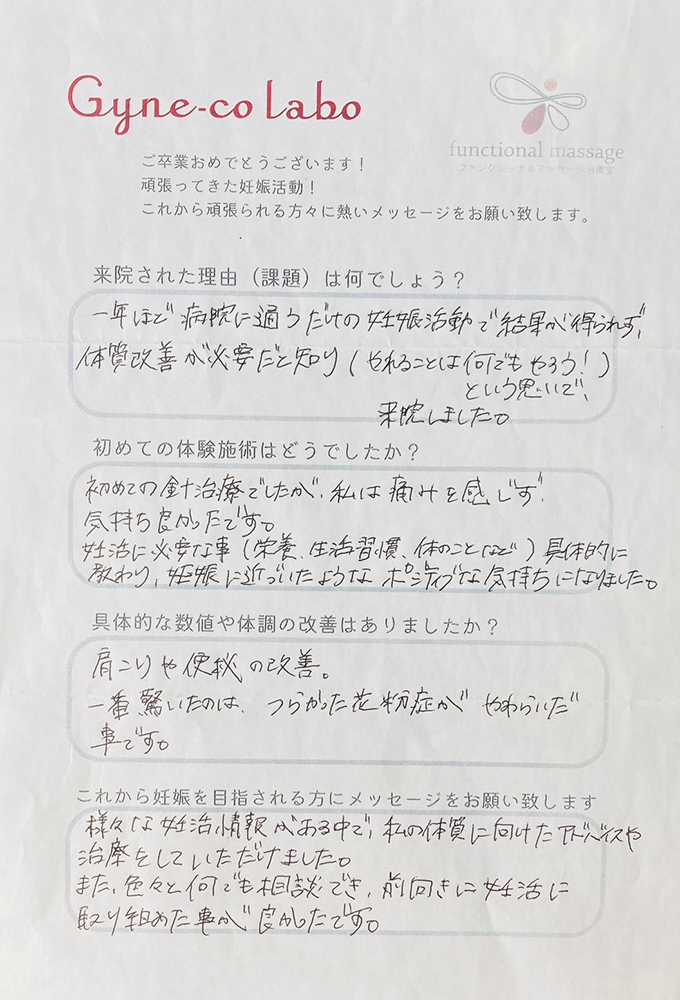 Gyne-co labo
functional massage
ファンクショナルマッサージ治療室
ご卒業おめでとうございます！
頑張ってきた妊娠活動！
これから頑張られる方々に熱いメッセージをお願い致します。
来院された理由（課題）は何でしょう？
一年ほど病院に通うだけの妊娠活動で結果が得られず、
体質改善が必要だと知り（やれることは何でもやろう！）
という思いで、
来院しました。
初めての体験施術はどうでしたか？
初めての針治療でしたが、私は痛みを感じず、
気持ち良かったです。
妊活に必要な事（栄養、生活習慣、体のことなど）具体的に
教わり、妊娠に近づいたようなポジティブな気持ちになりました。
具体的な数値や体調の改善はありましたか？
肩こりや便秘の改善。
一番驚いたのは、つらかった花粉症がやわらいだ
事です。
これから妊娠を目指される方にメッセージをお願い致します
様々な妊活情報がある中で、私の体質に向けたアドバイスや
治療をしていただけました。
また、色々と何でも相談でき、前向きに妊活に
取り組めた事が良かったです。